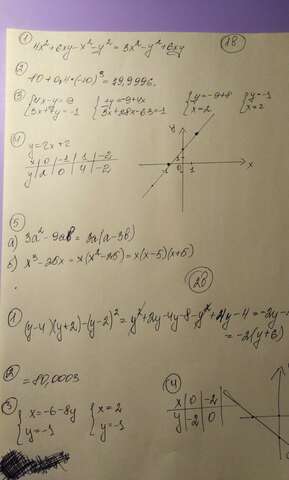 18
① 4x²+6xy-x²-y²=3x²-y²+6xy
② 10+0,4·(-10)³=
③ {4x-y=9 {y=-9+4x {y=-9+8 {y=-1
3x+7y=-1 3x+28x-63=-1 x=2 x=2
④ y=2x+2
x | 0 | -1 | 1 | -2
y | 2 | 0 | 4 | -2
y
x
1
-1 0 1
⑤
а) 3a²-9ab=3a(a-3b)
б) x³-25x=x(x²-25)=x(x-5)(x+5)
20
① (y-4)(y+2)-(y-2)²=y²+2y-4y-8-y²+4y-4=-2y-
=-2(y+6)
② =80,0003
③ {x=-6-8y {x=2
y=-1 y=-1
④
x | 0 | -2
y | -2 | 0